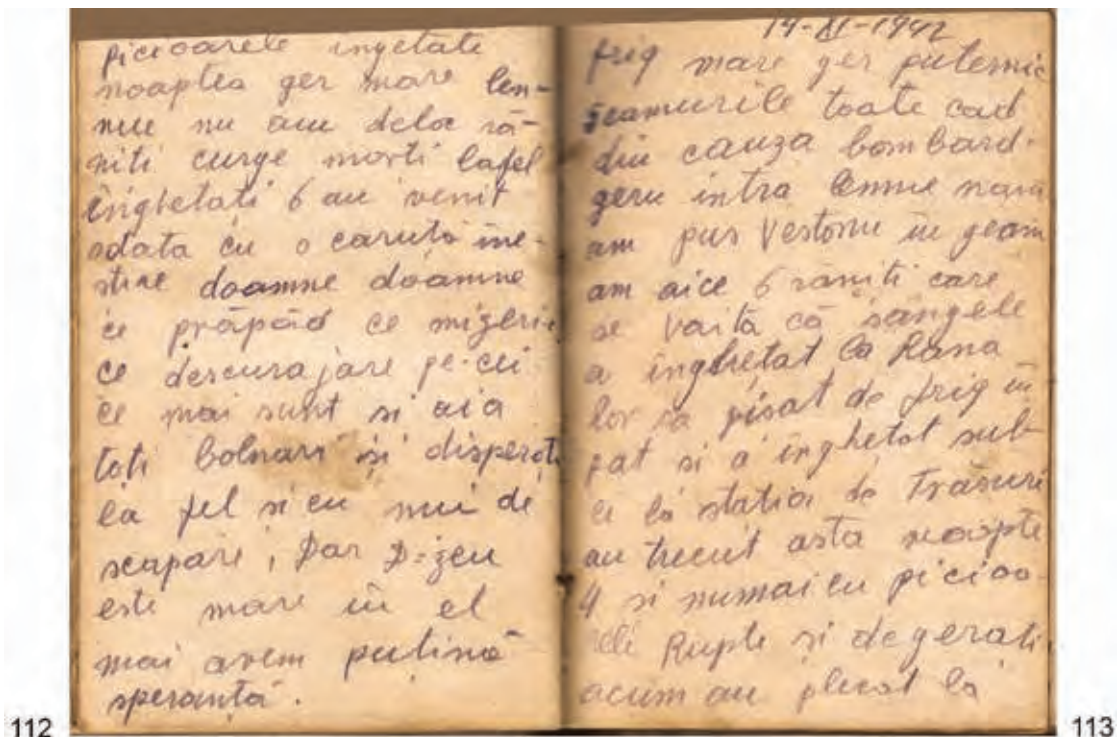 picioarele ingetate
noaptea ger mare lem-
nue nu am deloc ră-
niti curge morti lafel
înghetati 6 au venit
odata cu o caruta ine-
stire doamne doamne
ce prăpăd ce mizerie
ce descurajare pe cei
ce mai sunt si aia
toti bolnavi si disperati
la fel si eu nui de
scapare, Dar D-zeu
este mare in el
mai avem putină
speranta.
112
14-XI-1942
frig mare ger puternic
geamurile toate cad
din cauza bombard.
geru intra lemne
am pus Vestonu in geam
am aice 6 răniti care
se vaită că sângele
a inghetat Ca Rana
lor sa pisat de frig in
pat si a inghetat sub
ei la statia de Trăsuri
au trecut asta noapte
4 si numai cu picioa-
rele Rupte si degerati
acum au plecat la
113